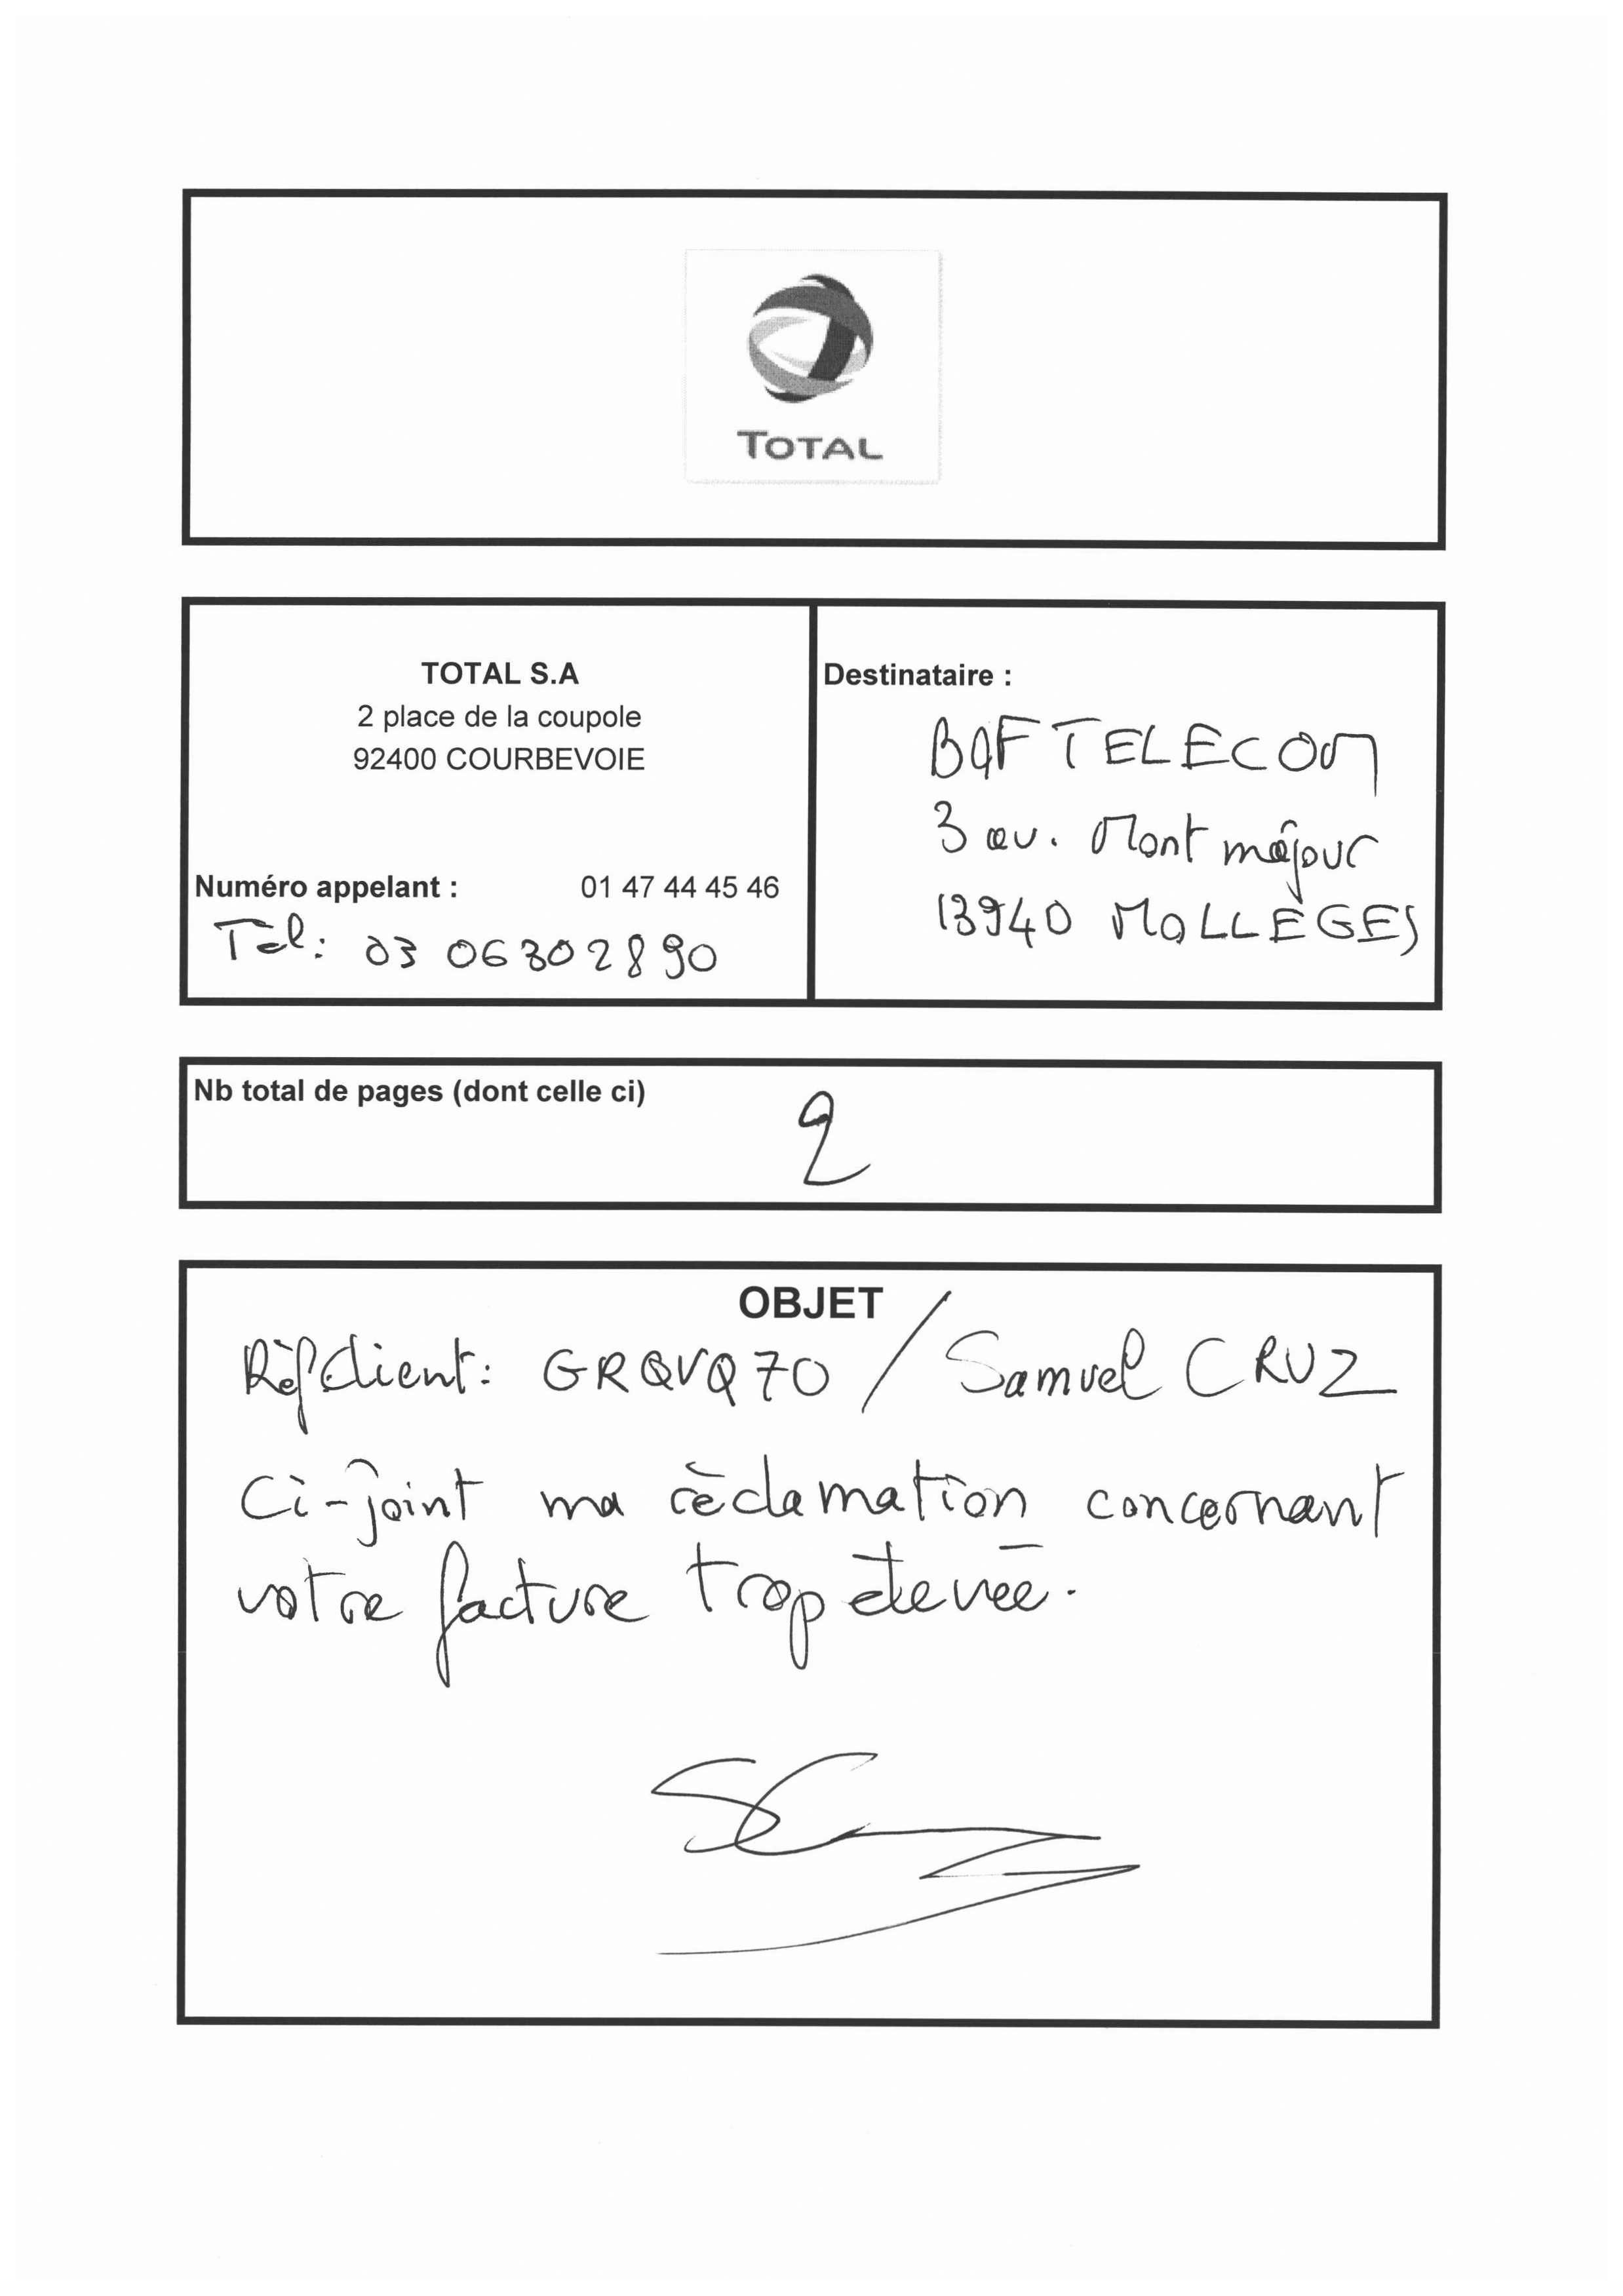 TOTAL
TOTAL S.A
2 place de la coupole
92400 COURBEVOIE
Numéro appelant : 01 47 44 45 46
Tel: 03 06302890
Destinataire :
BQF TELECOM
3 av. Mont majour
13940 MOLLEGES
Nb total de pages (dont celle ci) 2
OBJET
Réf client: GRQVQ70 / Samuel CRUZ
Ci-joint ma réclamation concernant
votre facture trop élevée.